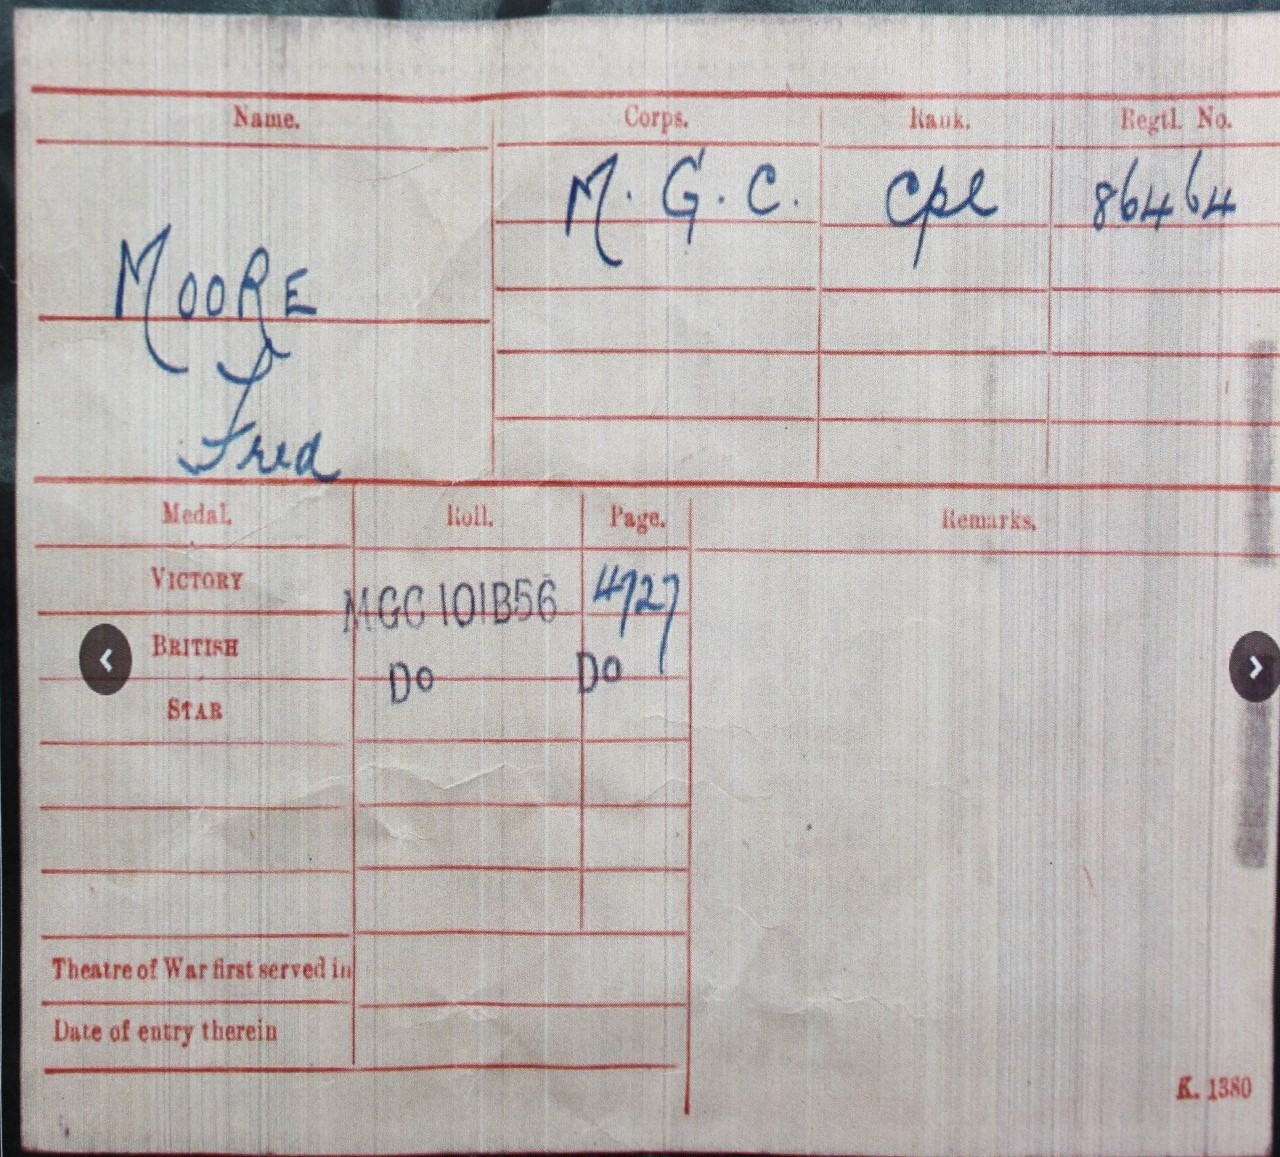 Name. Corps. Rank. Regtl. No.
M. G. C. Cpl 86464
MOORE
Fred
Medal. Roll. Page. Remarks.
VICTORY MGC 101B56 4727
BRITISH Do Do
STAR
Theatre of War first served in
Date of entry therein
K. 1380